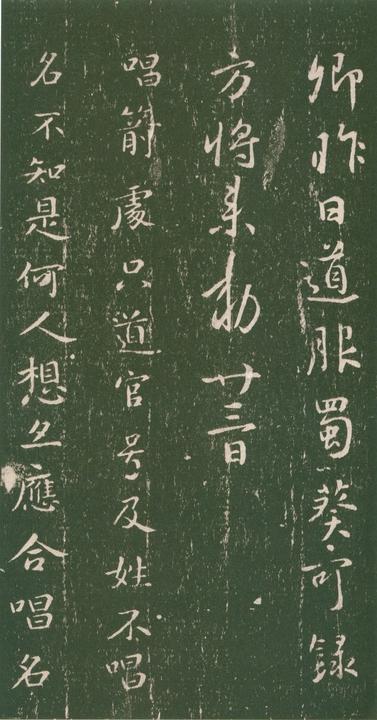 卿昨日道服蜀葵可錄
方將来勑廿三日
唱箭處只道官号及姓不唱
名不知是何人想亦應合唱名